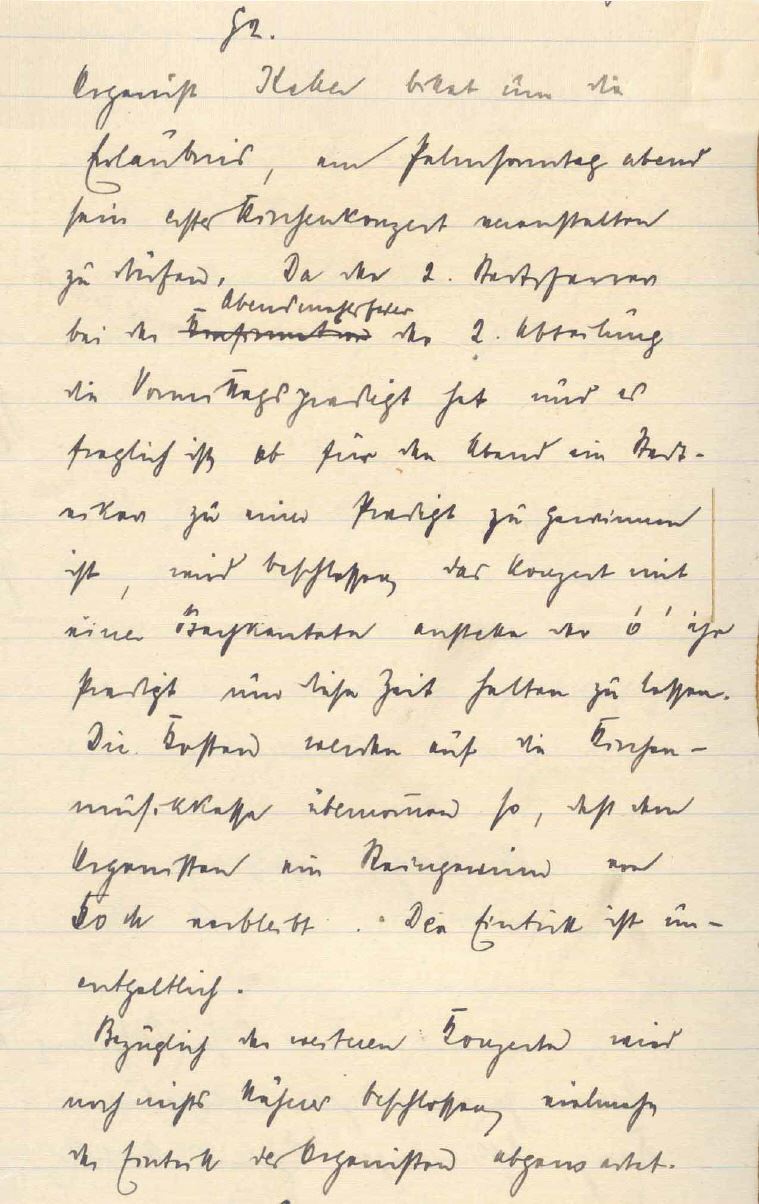 §2.
Organist Keller bittet um die
Erlaubnis, am Palmsonntag abend
sein erstes Kirchenkonzert veranstalten
zu dürfen. Da der 2. Stadtpfarrer
Abendmahlsfeier
bei der Konfirmation der 2. Abteilung
die Vormittagspredigt hat und es
fraglich ist, ob für den Abend ein Stadt-
vikar zu einer Predigt zu gewinnen
ist, wird beschlossen, das Konzert mit
einer Bachkantate anstelle der 6 Uhr
Predigt um diese Zeit halten zu lassen.
Die Kosten werden auf die Kirchen-
musikkasse übernom̅en so, daß dem
Organisten ein Reingewinn von
50 M verbleibt. Der Eintritt ist un-
entgeltlich.
Bezüglich der weiteren Konzerte wird
noch nichts Näheres beschlossen, vielmehr
der Eintritt des Organisten abgewartet.